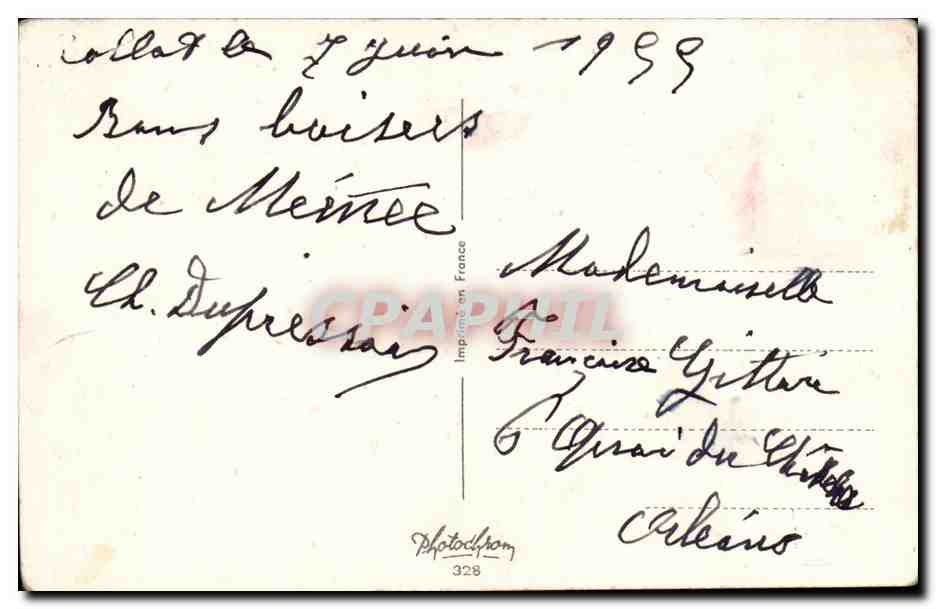 le 7 juin 1955
Bons baisers
de Mémée
Ch. Dupressoir
Mademoiselle
Françoise Gittere
6 Quai du Châtelet
Orléans
Imprimé en France
Photochrom
328
CPAPHIL